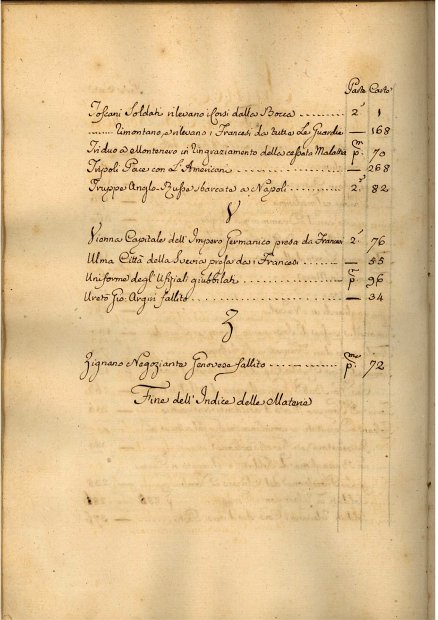 Parte Carte
Toscani Soldati rilevano i Corsi dalla Bocca .......... 2ª 1
....... rimontano, e rilevano i Francesi da tutte Le Guardie — 168
Triduo a Montenero in ringraziamento della cessata Malattia pma p. 70
Tripoli Pace con L'Americani ............... — 268
Truppe Anglo-Russe sbarcate a Napoli .......... 2ª 82
V
Vienna Capitale dell'Impero Germanico presa da Francesi 2ª 76
Ulma Città della Svevia presa da i Francesi ...... — 55
Uniforme degl'Ufiziali giubbilati ............... p. 96
Gio. fallito ............... — 34
Z
Zignano Negoziante Genovese fallito ............ p.me 72
Fine dell'Indice delle Materie